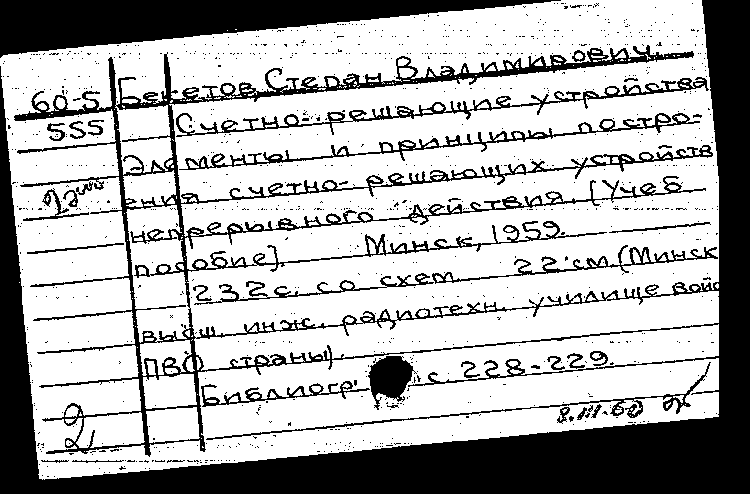 60-5 Бекетов, Степан Владимирович.
555 Счетно-решающие устройства
Элементы и принципы постро-
ения счетно-решающих устройств
непрерывного действия. [Учеб
пособие]. Минск, 1959.
232 с. со схем. 22 см. (Минск
высш. инж. радиотехн. училище войс
ПВО страны).
Библиогр. с. 228-229.
8.III.60